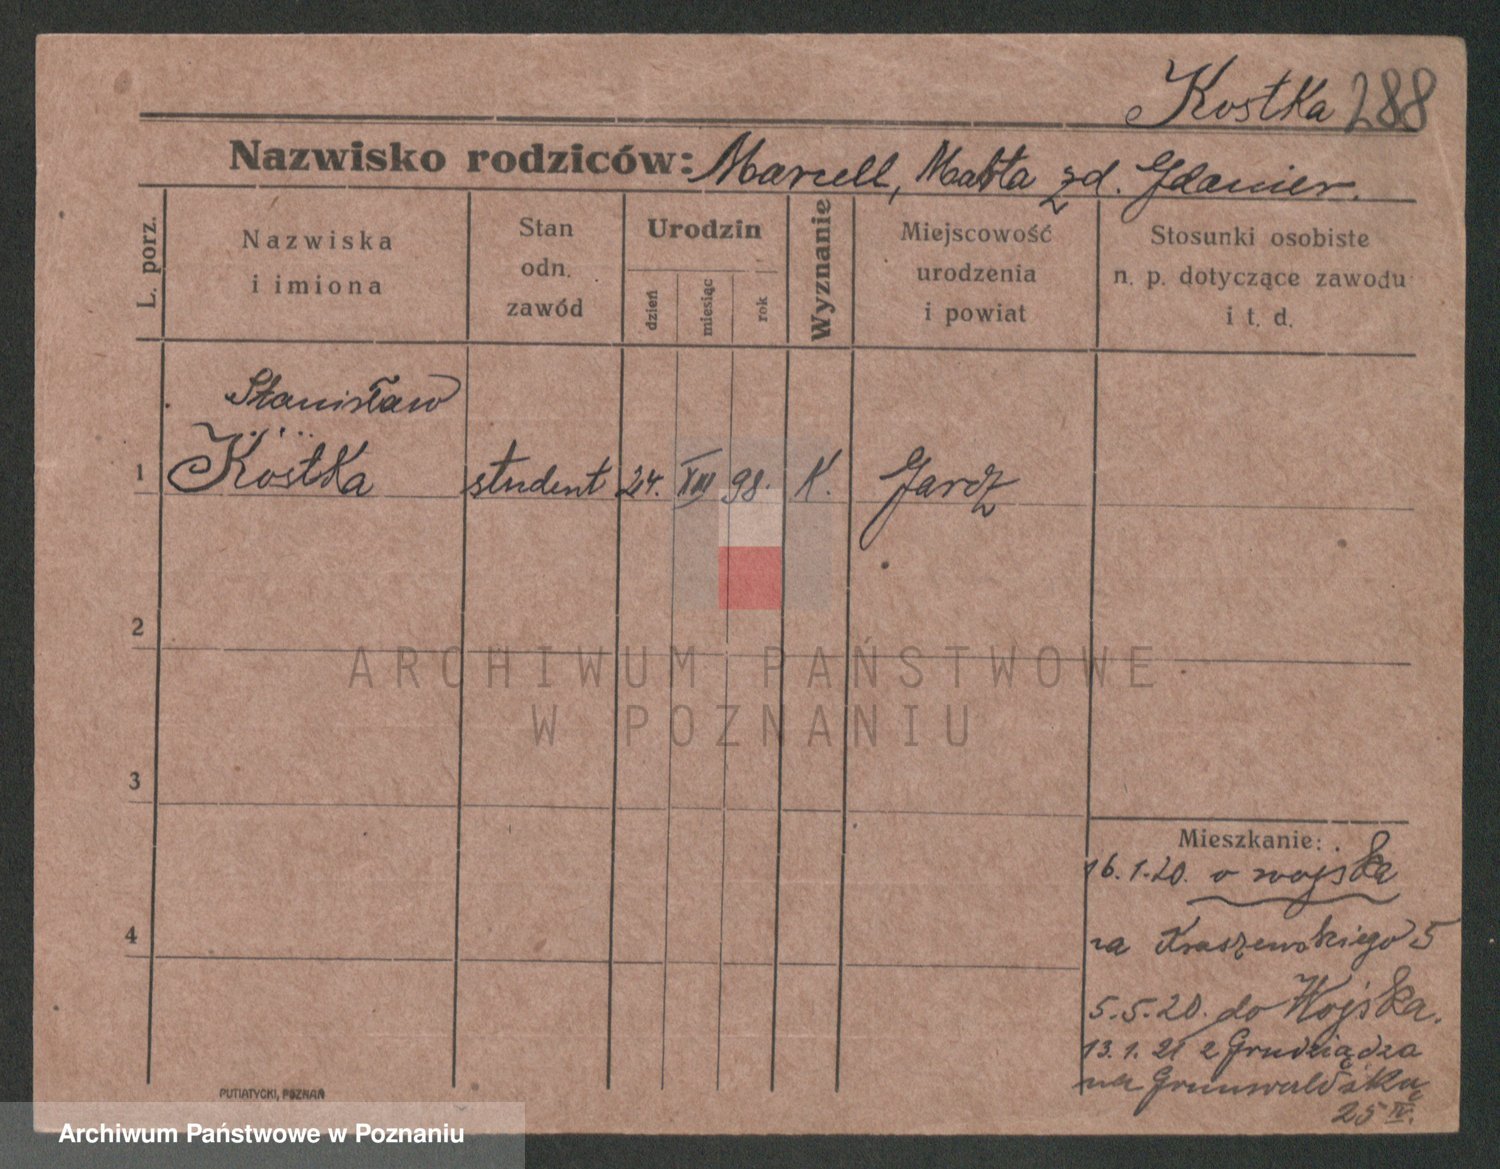 Kostka 288
Nazwisko rodziców: Marcell, Marta zd. Gdanier.
L. porz.
Nazwiska
i imiona
Stan
odn.
zawód
Urodzin
dzień
miesiąc
rok
Wyznanie
Miejscowość
urodzenia
i powiat
Stosunki osobiste
n. p. dotyczące zawodu
i t. d.
Stanisław
1 Kostka student 24. XII 98. K.
2
3
4
ARCHIWUM PAŃSTWOWE
W POZNANIU
Mieszkanie:
16.1.20. wojska
na Kraszewskiego 5
5.5.20. do Wojska.
13.1.21 z Grudziądza
na Grunwaldzką
25 IV.
PUTIATYCKI, POZNAŃ
Archiwum Państwowe w Poznaniu